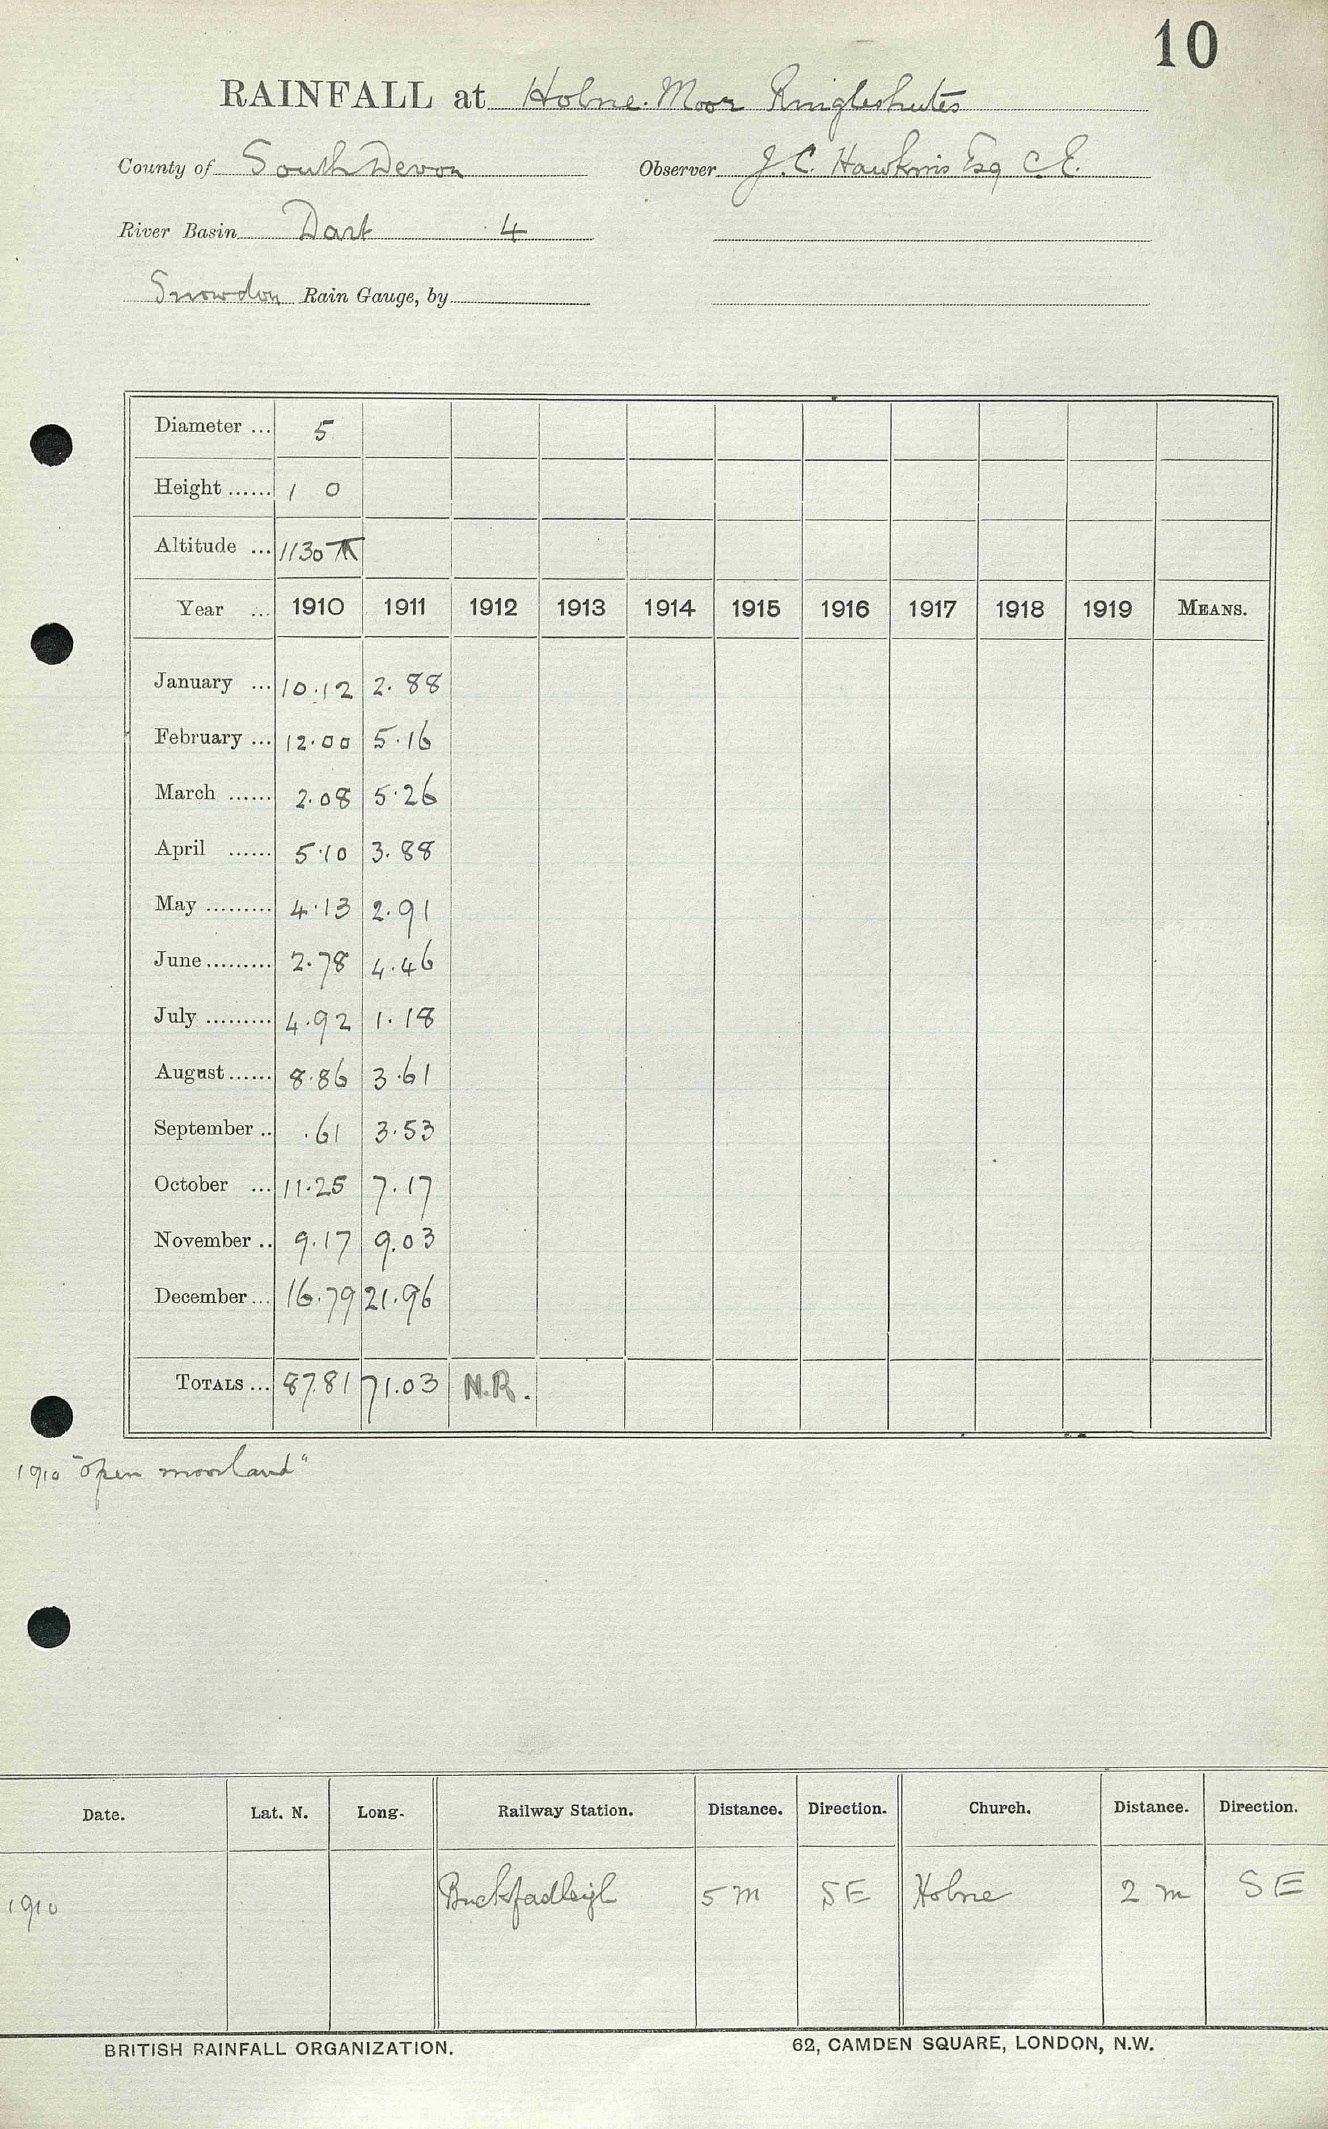 10
RAINFALL at Holne Moor Ringleshutes
County of South Devon Observer J. C. Hawkins Esq C.E.
River Basin Dart 4
Snowdon Rain Gauge, by
Diameter ... 5
Height ...... 1 0
Altitude ... 1130
Year ... 1910 1911 1912 1913 1914 1915 1916 1917 1918 1919 MEANS.
January ... 10.12 2.88
February ... 12.00 5.16
March ...... 2.08 5.26
April ...... 5.10 3.88
May ......... 4.13 2.91
June ......... 2.78 4.46
July ......... 4.92 1.18
August ...... 8.86 3.61
September .. .61 3.53
October ... 11.25 7.17
November .. 9.17 9.03
December ... 16.79 21.96
TOTALS ... 87.81 71.03 N.R.
1910 "open moorland"
Date. Lat. N. Long. Railway Station. Distance. Direction. Church. Distance. Direction.
1910 Buckfastleigh 5 m SE Holne 2 m SE
BRITISH RAINFALL ORGANIZATION. 62, CAMDEN SQUARE, LONDON, N.W.